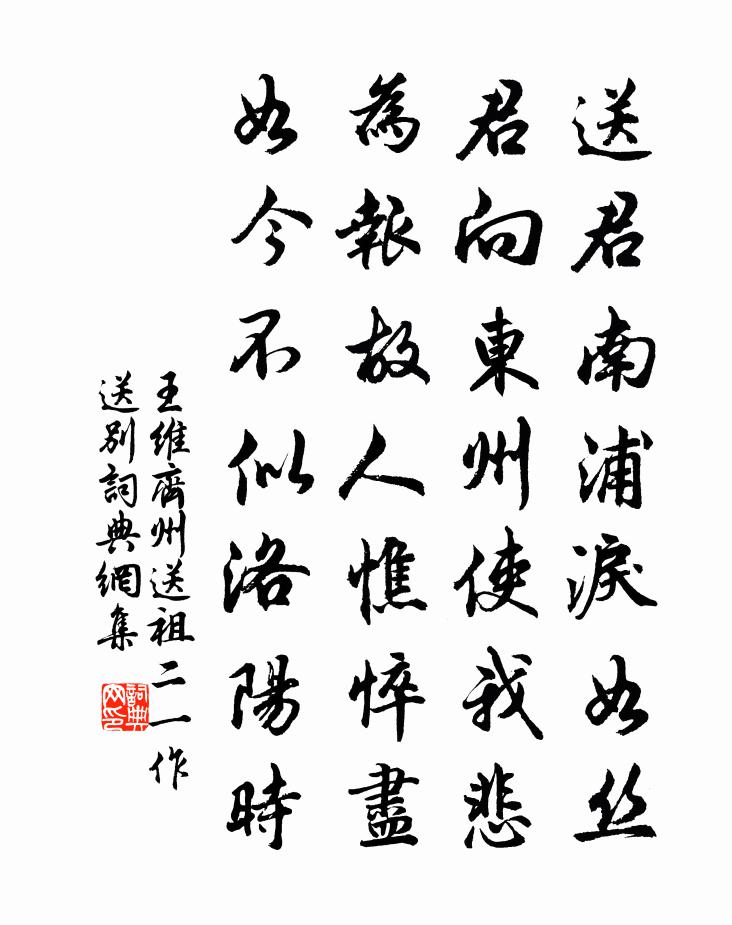 送君南浦淚如丝
君向東州使我悲
為報故人憔悴盡
如今不似洛陽時
王維齊州送祖二一作
送別詞典網集
詞典网印